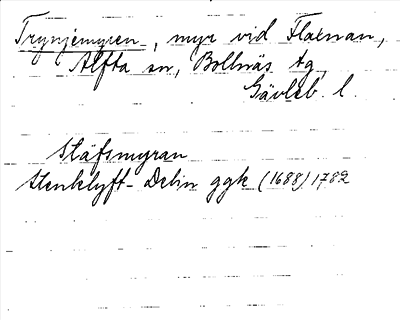 Trynjemyren, myr vid Flaxnan,
Alfta sn, Bollnäs tg
Gävleb. l.
Stäfsmyran
Stenklyft- Delin ggk (1688) 1782